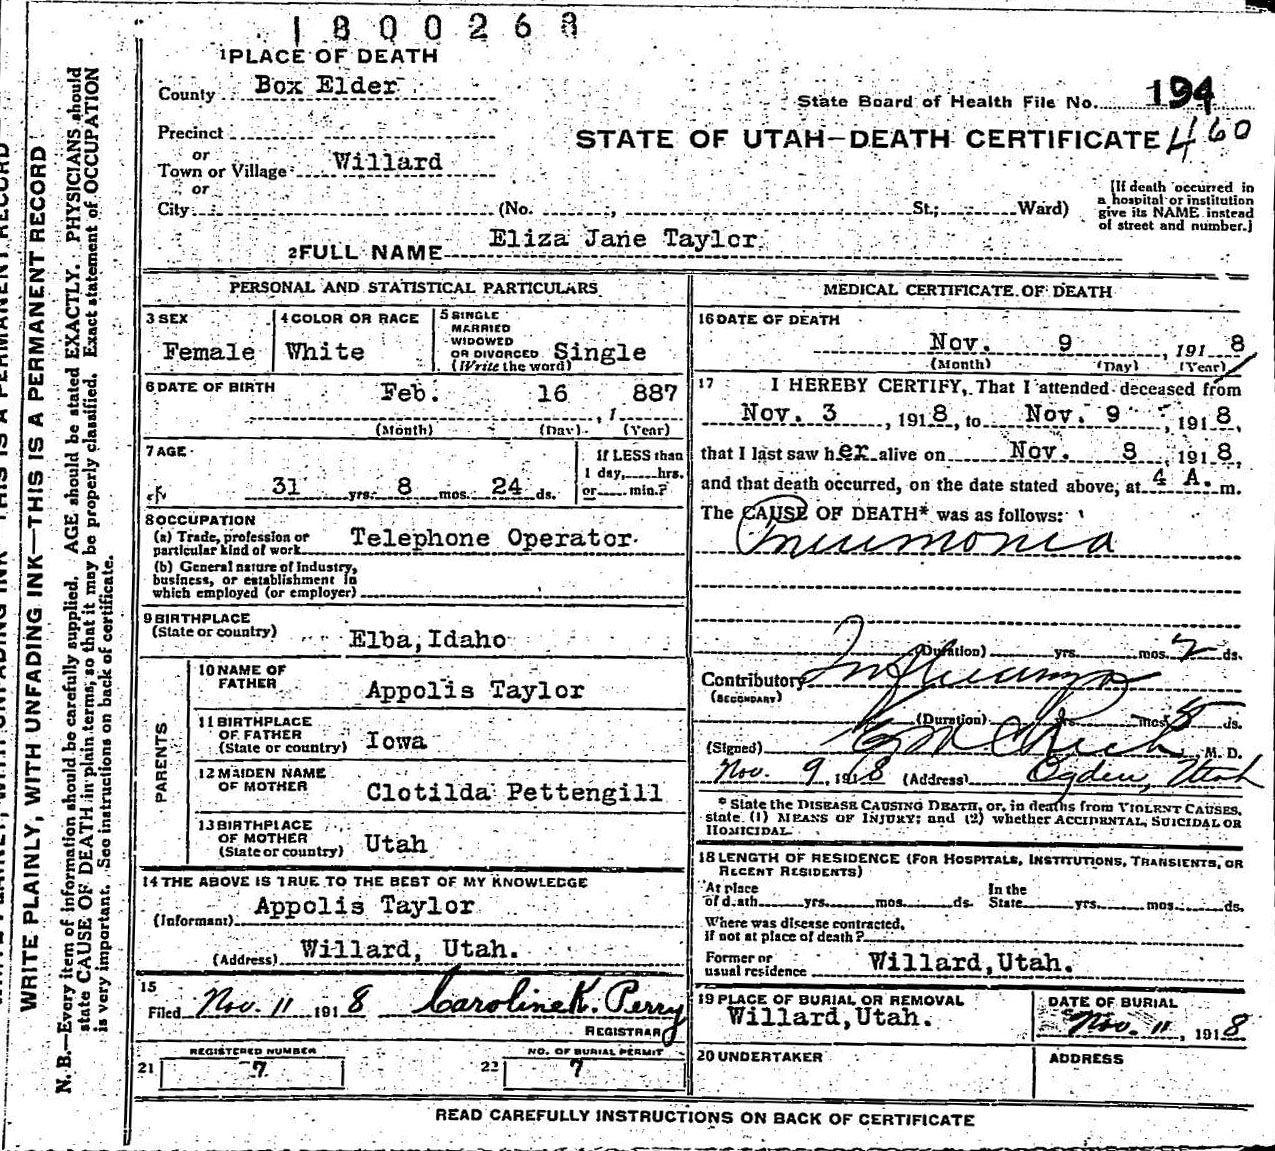 1800268
1 PLACE OF DEATH
County Box Elder
State Board of Health File No. 194
Precinct
STATE OF UTAH—DEATH CERTIFICATE 460
or
Town or Village Willard
or
City (No. , St.; Ward)
[If death occurred in
a hospital or institution
give its NAME instead
of street and number.]
2 FULL NAME Eliza Jane Taylor
PERSONAL AND STATISTICAL PARTICULARS
3 SEX
Female
4 COLOR OR RACE
White
5 SINGLE
MARRIED
WIDOWED
OR DIVORCED Single
(Write the word)
6 DATE OF BIRTH
Feb. 16 , 1 887
(Month) (Day) (Year)
7 AGE
31 yrs. 8 mos. 24 ds.
If LESS than
1 day, hrs.
or min.?
8 OCCUPATION
(a) Trade, profession or
particular kind of work Telephone Operator
(b) General nature of Industry,
business, or establishment in
which employed (or employer)
9 BIRTHPLACE
(State or country) Elba, Idaho
PARENTS
10 NAME OF
FATHER Appolis Taylor
11 BIRTHPLACE
OF FATHER
(State or country) Iowa
12 MAIDEN NAME
OF MOTHER Clotilda Pettengill
13 BIRTHPLACE
OF MOTHER
(State or country) Utah
14 THE ABOVE IS TRUE TO THE BEST OF MY KNOWLEDGE
(Informant) Appolis Taylor
(Address) Willard, Utah.
15
Filed Nov. 11 191 8 Caroline K. Perry
REGISTRAR
REGISTERED NUMBER
21 7
NO. OF BURIAL PERMIT
22 7
MEDICAL CERTIFICATE OF DEATH
16 DATE OF DEATH
Nov. 9 , 191 8
(Month) (Day) (Year)
17 I HEREBY CERTIFY, That I attended deceased from
Nov. 3 , 191 8, to Nov. 9 , 191 8,
that I last saw h er alive on Nov. 8 , 191 8,
and that death occurred, on the date stated above, at 4 A. m.
The CAUSE OF DEATH* was as follows:
Pneumonia
(Duration) yrs. mos. 2 ds.
Contributory Influenza
(SECONDARY)
(Duration) yrs. mos. 5 ds.
(Signed) Rich M. D.
Nov. 9, 191 8 (Address) Ogden, Utah
* State the DISEASE CAUSING DEATH, or, in deaths from VIOLENT CAUSES,
state (1) MEANS OF INJURY; and (2) whether ACCIDENTAL, SUICIDAL OR
HOMICIDAL.
18 LENGTH OF RESIDENCE (FOR HOSPITALS, INSTITUTIONS, TRANSIENTS, OR
RECENT RESIDENTS)
At place
of death yrs. mos. ds.
In the
State yrs. mos. ds.
Where was disease contracted,
if not at place of death?
Former or
usual residence Willard, Utah.
19 PLACE OF BURIAL OR REMOVAL
Willard, Utah.
DATE OF BURIAL
Nov. 11, 191 8
20 UNDERTAKER
ADDRESS
READ CAREFULLY INSTRUCTIONS ON BACK OF CERTIFICATE
WRITE PLAINLY, WITH UNFADING INK—THIS IS A PERMANENT RECORD
N. B.—Every item of information should be carefully supplied. AGE should be stated EXACTLY. PHYSICIANS should
state CAUSE OF DEATH in plain terms, so that it may be properly classified. Exact statement of OCCUPATION
is very important. See instructions on back of certificate.